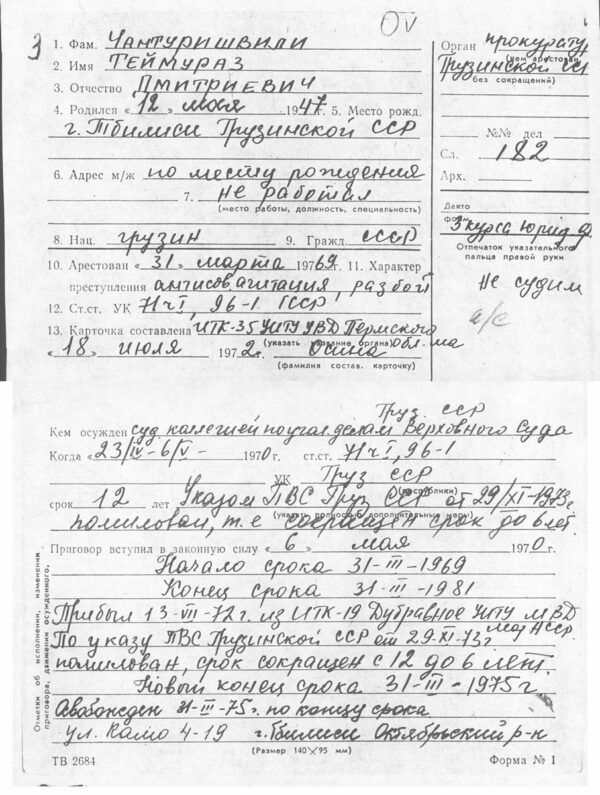 OV
3
1. Фам. Чантуришвили
2. Имя Теймураз
3. Отчество Дмитриевич
4. Родился « 12 » мая 1947г. 5. Место рожд.
г. Тбилиси Грузинской ССР
6. Адрес м/ж по месту рождения
7. не работал
(место работы, должность, специальность)
8. Нац. грузин 9. Гражд. СССР
10. Арестован « 31 » марта 1969г. 11. Характер
преступления антисов. агитация, разбой
12. Ст.ст. УК 71 ч I, 96-1 ГССР
13. Карточка составлена ИТК-35 УИТУ УВД Пермского
(указать название органа) обл-та
« 18 » июля 1972г. Осина
(фамилия состав. карточку)
Орган прокуратур
(кем арестован
Грузинской ССР
без сокращений)
№№ дел
Сл. 182
Арх.
Дакто
форм.
3 курса юрид. ф.
Отпечаток указательного
пальца правой руки
не судим
а/с
Груз. ССР
Кем осужден суд. коллегией по угол. делам Верховного Суда
Когда « 23/IV - 6/V - 1970г. ст.ст. 71 ч I, 96-1
УК Груз ССР
(республики)
срок 12 лет Указом ПВС Груз ССР от 29/XI-1973г
(указать полностью дополнительные меры)
помилован, т.е сокращен срок до 6 лет.
Приговор вступил в законную силу « 6 » мая 1970г.
Начало срока 31-III-1969
Конец срока 31-III-1981
Прибыл 13-VII-72г. из ИТК-19 Дубравное УИТУ МВД
МордАССР
По указу ПВС Грузинской ССР от 29-XI-73г
помилован, срок сокращен с 12 до 6 лет.
Новый конец срока 31-III-1975г
Освобожден 31-III-75г. по концу срока
ул. Камо 4-19 г. Тбилиси Октябрьский р-н
(Размер 140×95 мм)
ТВ 2684 Форма № 1
Отметки об исполнении, изменении
приговора, движении осужденного.